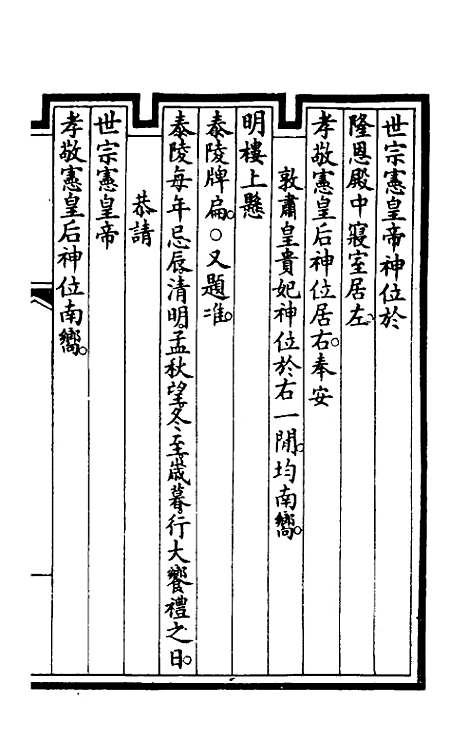 世宗憲皇帝神位於
隆恩殿中寢室居左
孝敬憲皇后神位居右。奉安
敦肅皇貴妃神位於右一閒。均南嚮。
明樓上懸
泰陵牌扁。○又題准。
泰陵每年忌辰清明。孟秋望冬至歲暮。行大饗禮之日。
恭請
世宗憲皇帝
孝敬憲皇后神位南嚮。